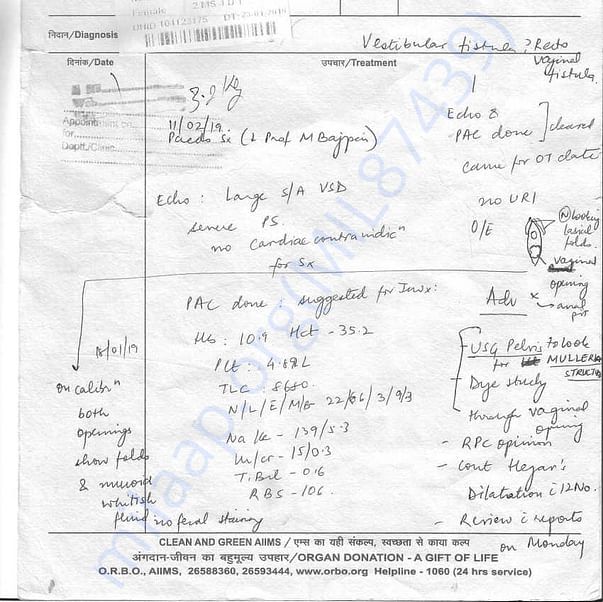 Female
UHID 104123175
निदान/Diagnosis
Vestibular fistula ? Recto vaginal fistula
दिनांक/Date
उपचार/Treatment
Appointment
for
Deptt./Clinic
11/02/19
Paeds Sx (L Prof M Bajpai)
Echo &
PAC done ] cleared
Came for OT date
Echo : Large S/A VSD
severe PS.
no Cardiac contraindicn
for Sx
no URI
O/E
(N) looking
labial
folds.
vaginal
opening
anal
pit
18/01/19
On calibrn
both
openings
show folds
& mucoid
whitish
fluid no fecal staining
PAC done : suggested for Invx :
Hb : 10.9 Hct - 35.2
Plt : 4.68L
TLC : 8680.
N/L/E/M/B 22/66/3/9/3
Na/K - 139/5.3
U/Cr - 15/0.3
T.Bil - 0.6
RBS - 106.
Adv
USG Pelvis to look
for MULLERIAN
STRUCTS
Dye study
through vaginal
opening
- RPC opinion
- Cont Hegar's
Dilatation c 12 No.
- Review c reports
on Monday
CLEAN AND GREEN AIIMS / एम्स का यही संकल्प, स्वच्छता से काया कल्प
अंगदान-जीवन का बहुमूल्य उपहार/ORGAN DONATION - A GIFT OF LIFE
O.R.B.O., AIIMS, 26588360, 26593444, www.orbo.org Helpline - 1060 (24 hrs service)